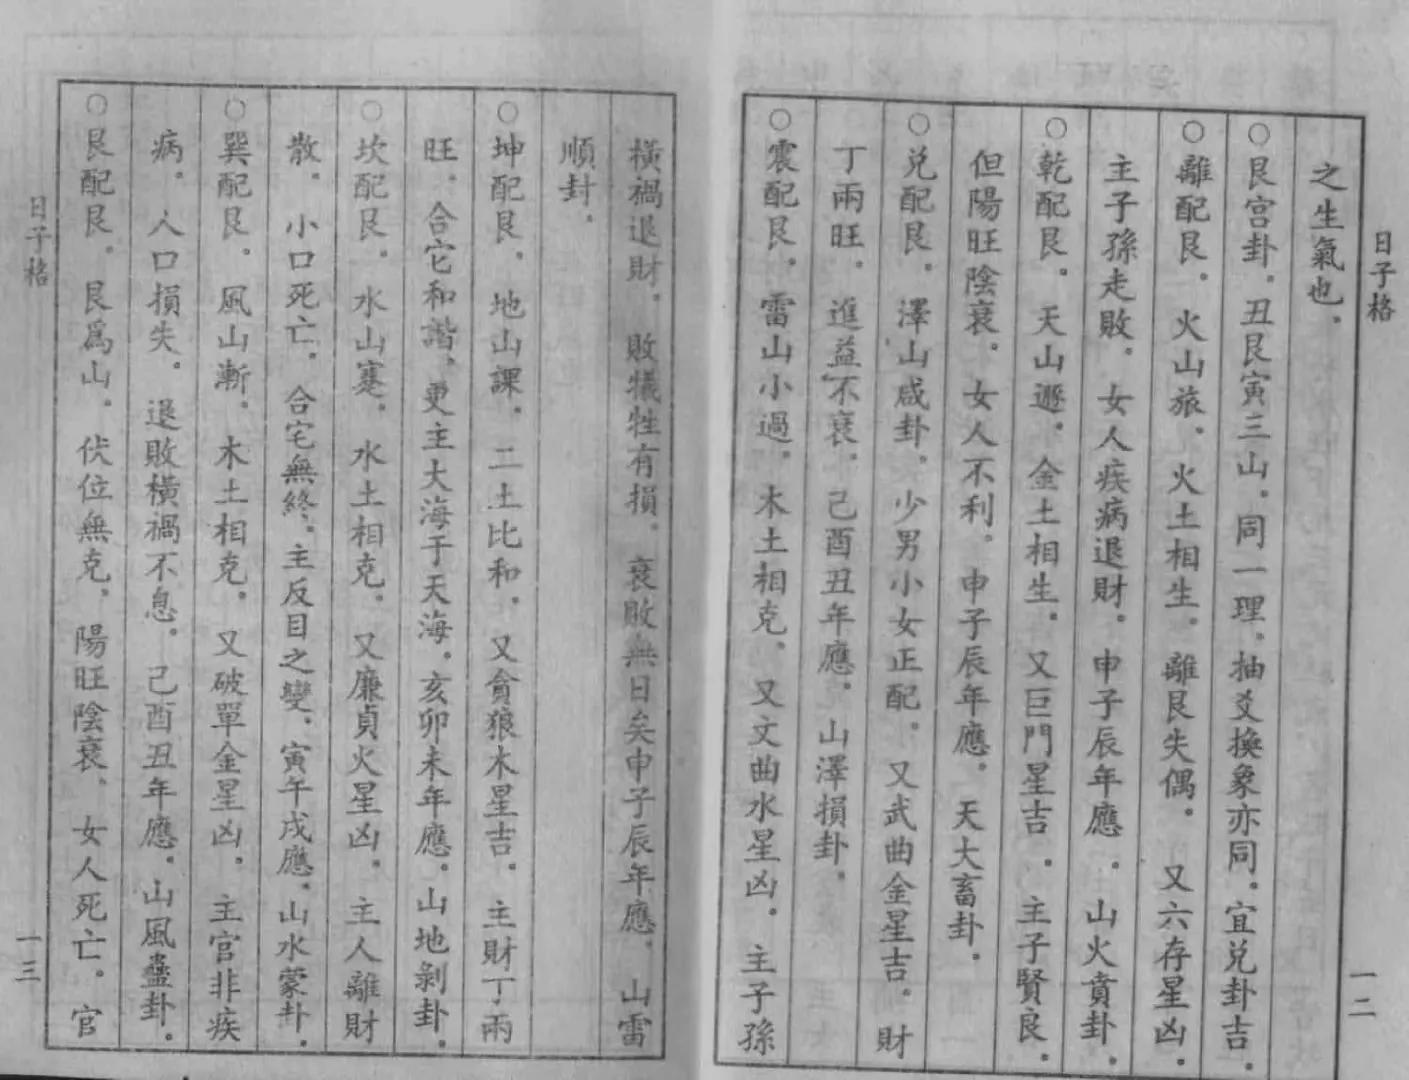 日子格
一二
之生氣也.
○艮宫卦.丑艮寅三山.同一理.抽爻換象亦同.宜兑卦吉.
○離配艮.火山旅.火土相生.離艮失偶.又六存星凶.
主子孫走敗.女人疾病退財.申子辰年應.山火賁卦.
○乾配艮.天山遯.金土相生.又巨門星吉.主子賢良.
但陽旺陰衰.女人不利.申子辰年應.天大畜卦.
○兑配艮.澤山咸卦.少男小女正配.又武曲金星吉.財
丁兩旺.進益不衰.己酉丑年應.山澤損卦.
○震配艮.雷山小過.木土相克.又文曲水星凶.主子孫
橫禍退財.敗犧牲有損.衰敗無日矣申子辰年應.山雷
順卦.
○坤配艮.地山課.二土比和.又貪狼木星吉.主財丁兩
旺.合它和諧.更主大海于天海.亥卯未年應.山地剝卦.
○坎配艮.水山蹇.水土相克.又廉貞火星凶.主人離財
散.小口死亡.合宅無終.主反目之變.寅午戌應.山水蒙卦.
○巽配艮.風山漸.木土相克.又破單金星凶.主官非疾
病.人口損失.退敗橫禍不息.己酉丑年應.山風蠱卦.
○艮配艮.艮爲山.伏位無克.陽旺陰衰.女人死亡.官
日子格
一三